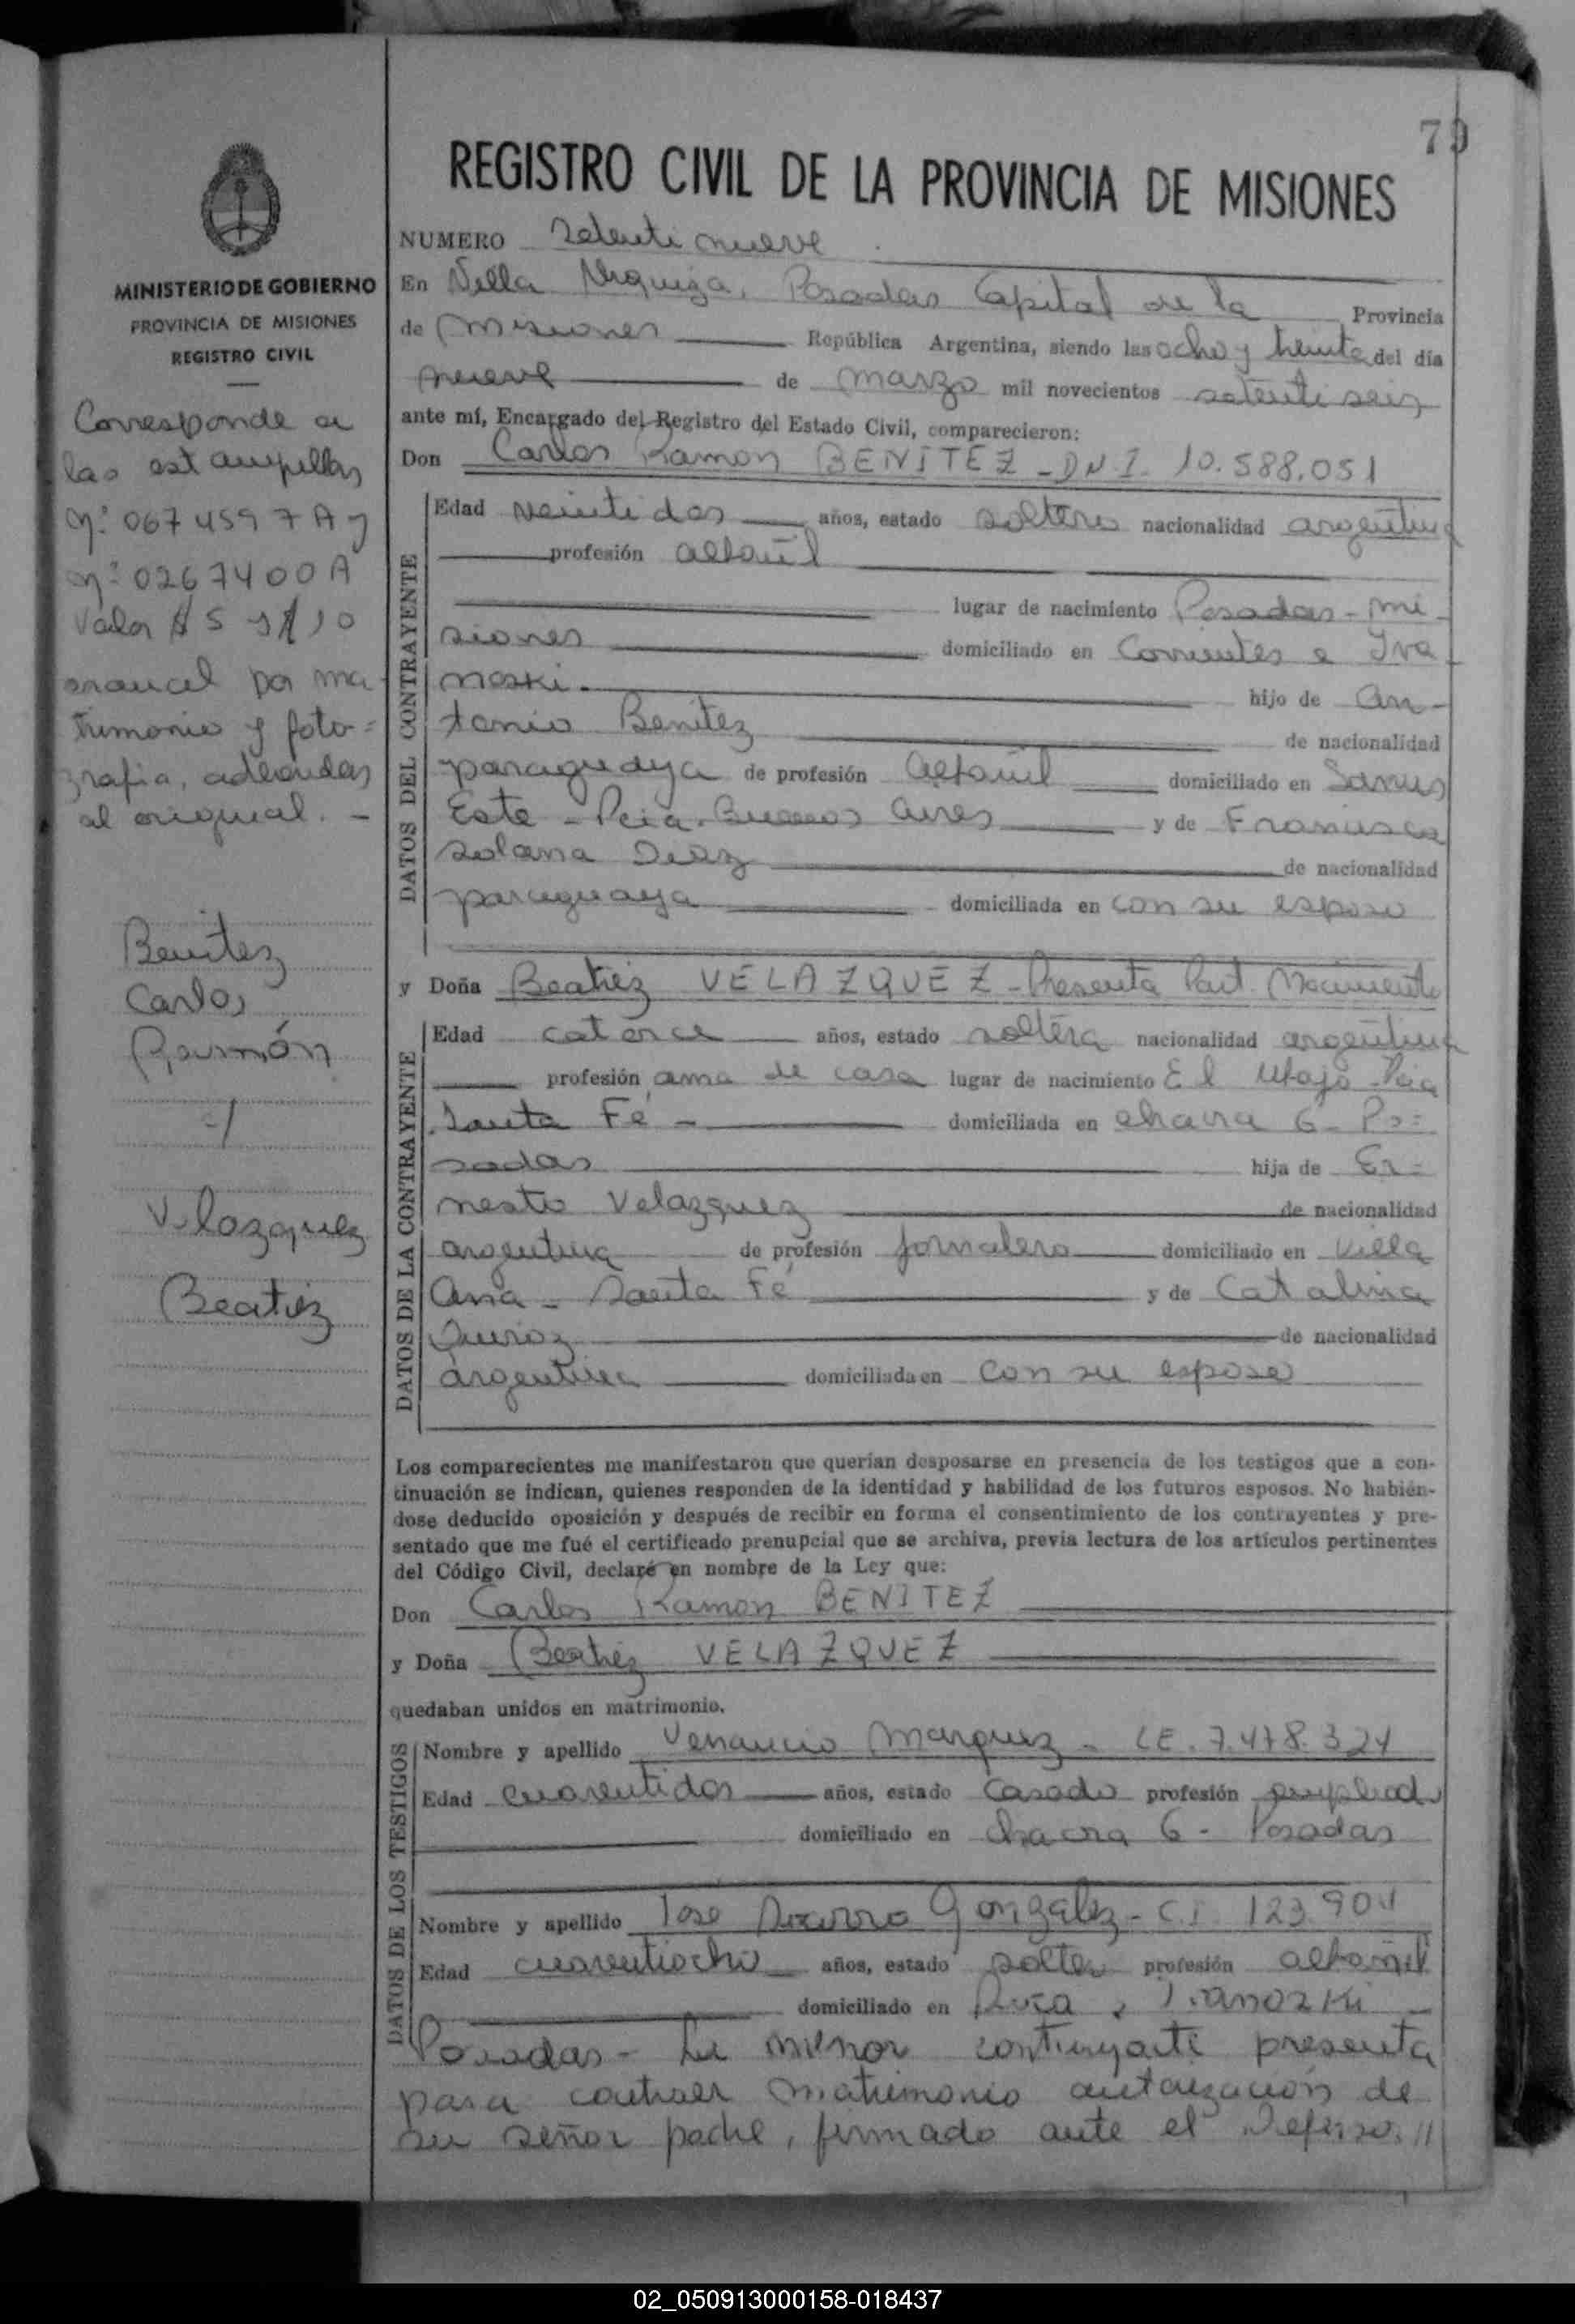 79
REGISTRO CIVIL DE LA PROVINCIA DE MISIONES
MINISTERIO DE GOBIERNO
PROVINCIA DE MISIONES
REGISTRO CIVIL
Corresponde a
las estampillas
Nº 0674597A y
Nº 0267400A
Valor $ 5 y $ 10
arancel por ma-
trimonio y foto=
grafia, adeudas
al original. -
Benitez
Carlos
Ramón
=/
Velazquez
Beatriz
NUMERO setenti nueve
En Villa Urquiza, Posadas Capital de la Provincia
de Misiones República Argentina, siendo las ocho y treinta del día
nueve de marzo mil novecientos setenti seis
ante mí, Encargado del Registro del Estado Civil, comparecieron:
Don Carlos Ramon BENITEZ - D N I. 10.588.051
DATOS DEL CONTRAYENTE
Edad veintidos años, estado soltero nacionalidad argentina
profesión albañil
lugar de nacimiento Posadas - Mi-
siones domiciliado en Corrientes e Iva-
noski. hijo de An-
tonio Benitez de nacionalidad
paraguaya de profesión albañil domiciliado en Lanus
Este - Pcia. Buenos Aires y de Francisca
Solana Diaz de nacionalidad
paraguaya domiciliada en con su esposo
y Doña Beatriz VELAZQUEZ - Presenta Part. Nacimiento
DATOS DE LA CONTRAYENTE
Edad catorce años, estado soltera nacionalidad argentina
profesión ama de casa lugar de nacimiento El Pcia
Santa Fé - domiciliada en chacra 6 - Po=
sadas hija de Er=
nesto Velazquez de nacionalidad
argentina de profesión jornalero domiciliado en Villa
Ana - Santa Fé y de Catalina
Quiroz de nacionalidad
argentina domiciliada en con su esposo
Los comparecientes me manifestaron que querían desposarse en presencia de los testigos que a con-
tinuación se indican, quienes responden de la identidad y habilidad de los futuros esposos. No habién-
dose deducido oposición y después de recibir en forma el consentimiento de los contrayentes y pre-
sentado que me fué el certificado prenupcial que se archiva, previa lectura de los artículos pertinentes
del Código Civil, declaré en nombre de la Ley que:
Don Carlos Ramon BENITEZ
y Doña Beatriz VELAZQUEZ
quedaban unidos en matrimonio.
DATOS DE LOS TESTIGOS
Nombre y apellido Venancio Marquez - LE. 7.478.324
Edad cuarentidos años, estado casado profesión empleado
domiciliado en chacra 6 - Posadas
Nombre y apellido José Gonzalez - C.I. 123.904
Edad cuarentiocho años, estado soltero profesión albañil
domiciliado en Roca e Ivanozki -
Posadas - La menor contrayente presenta
para contraer matrimonio autorización de
su señor padre, firmado ante el Defensor //
02_050913000158-018437